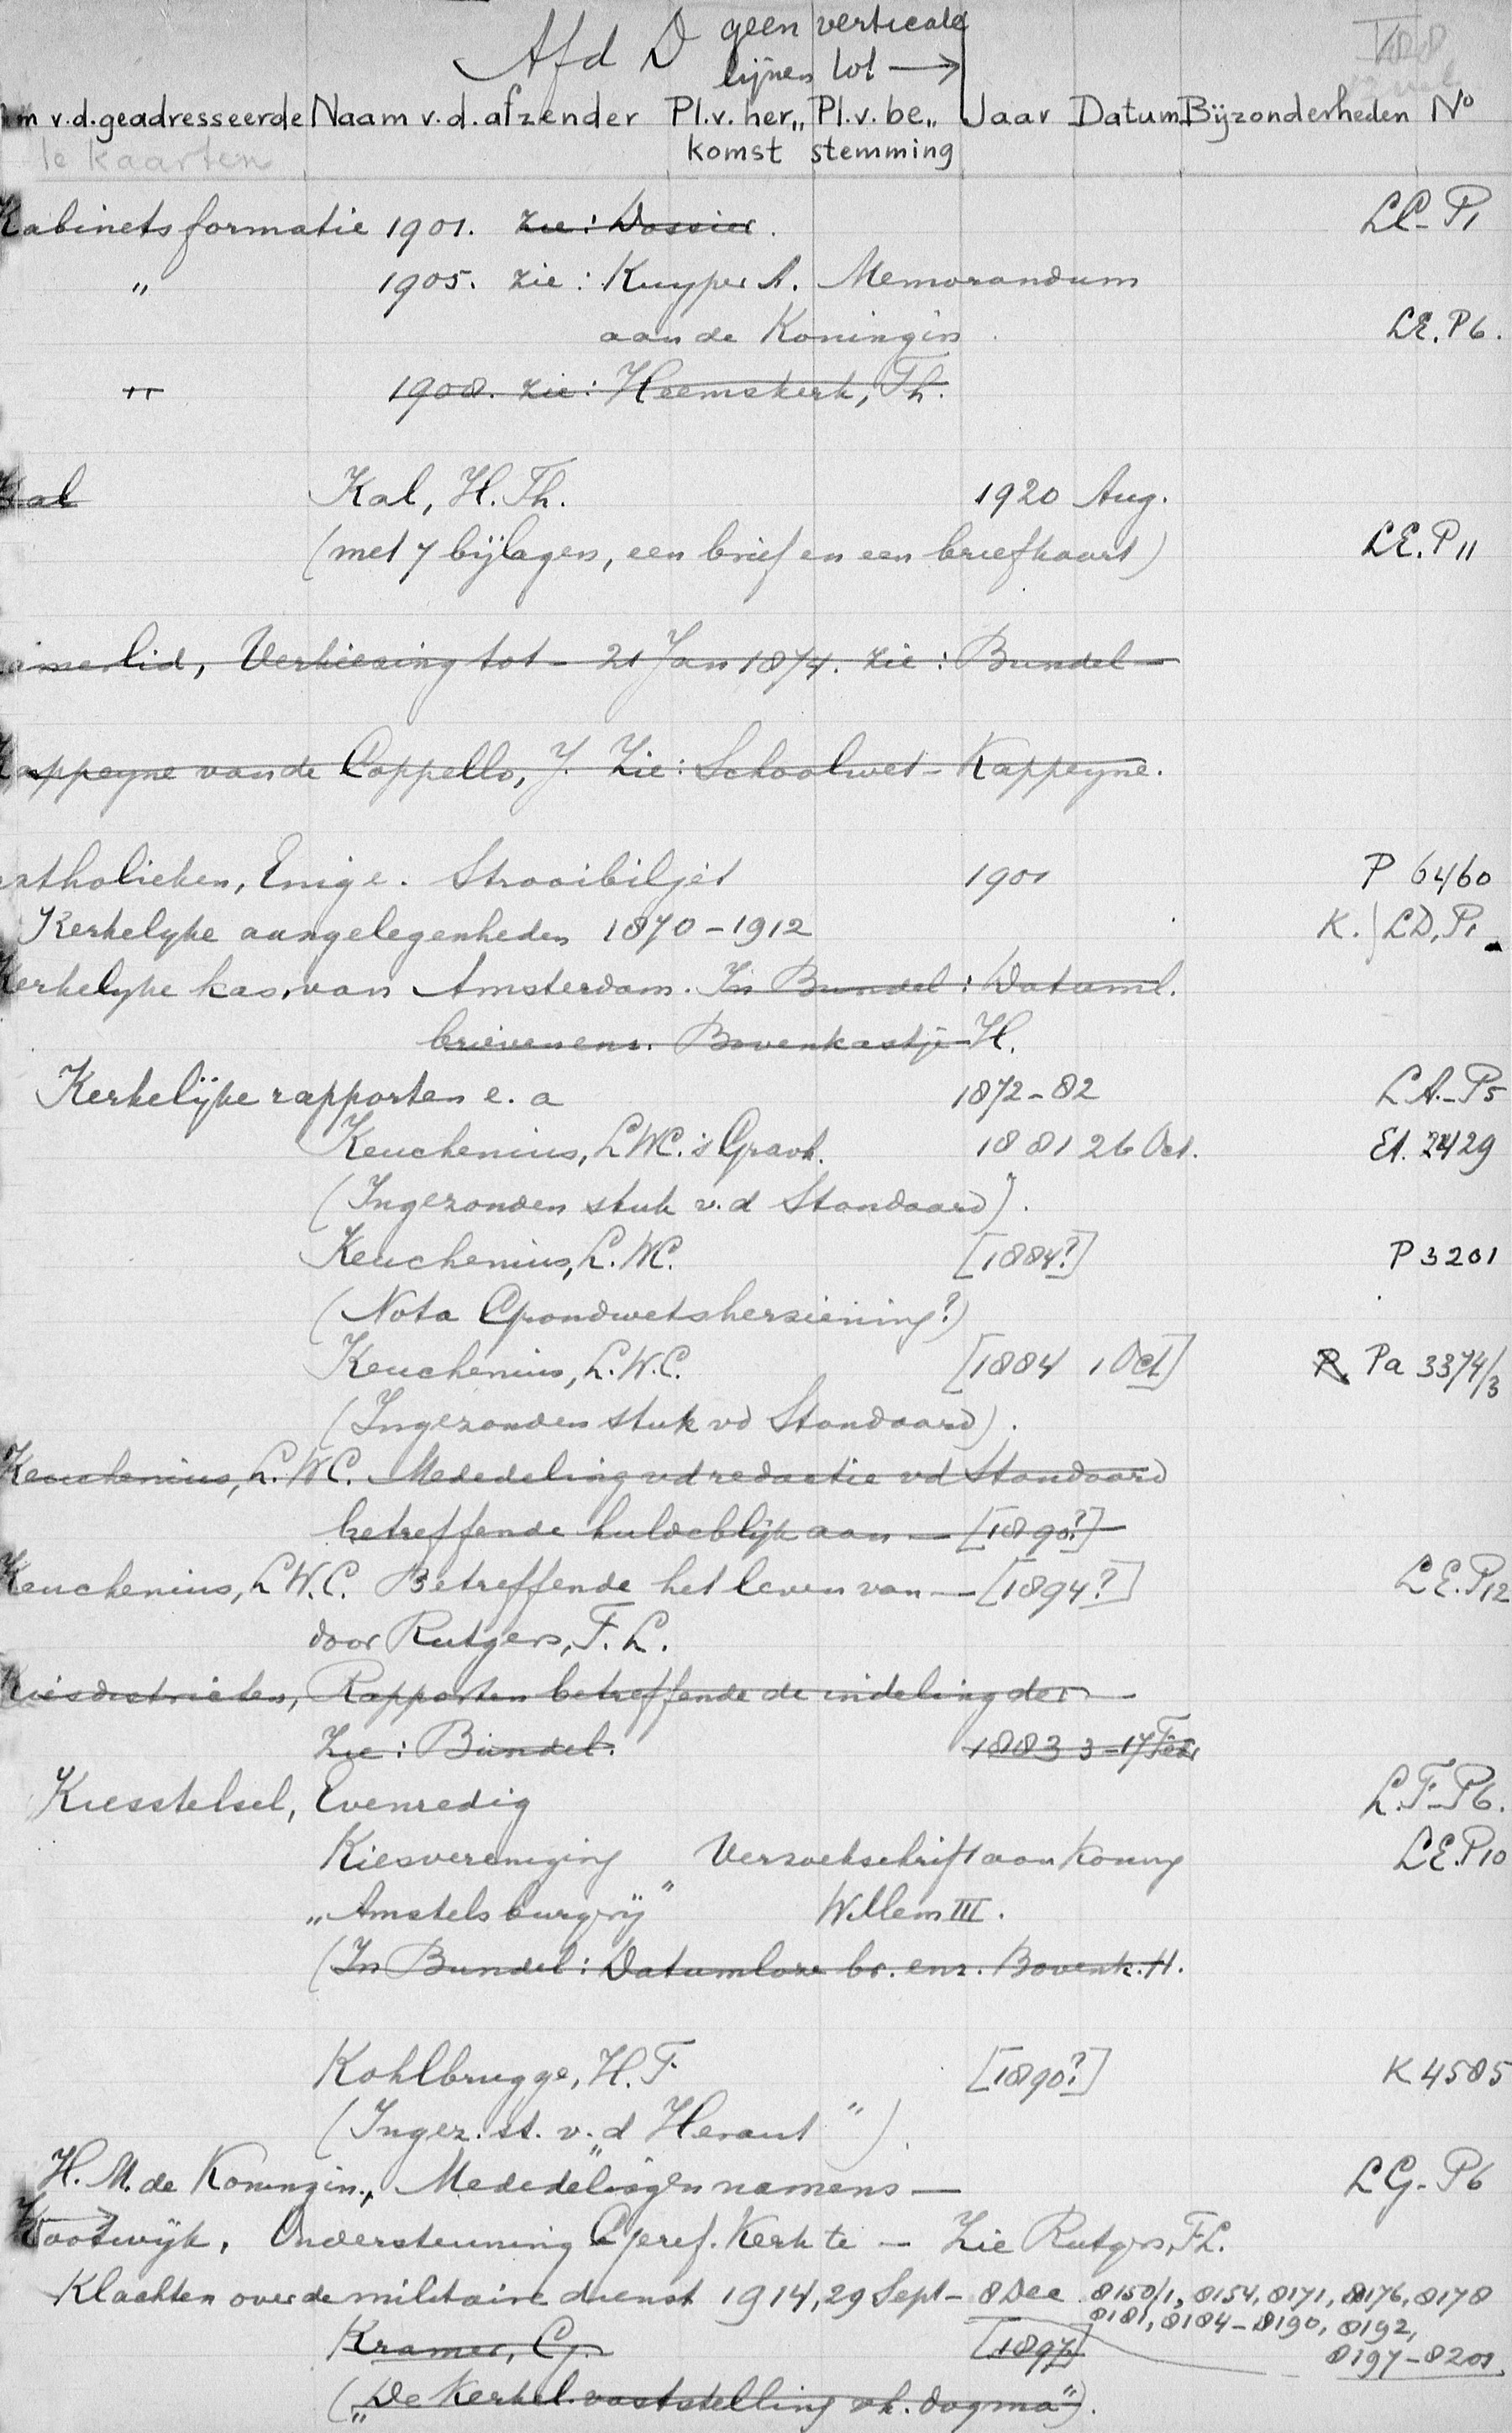 Afd D geen verticale
lijnen tot →
m v.d. geadresseerde Naam v.d. afzender Pl. v. her„ Pl. v. be„ Jaar Datum Bijzonderheden No
komst stemming
1e kaarten
Kabinetsformatie 1901. zie: Dossier. LC-P1
„ 1905. zie: Kuyper A. Memorandum
aan de Koningin LE.P6.
„ 1908. zie: Heemskerk, Th.
Kal Kal, H. Th. 1920 Aug.
(met 7 bijlagen, een brief en een briefkaart) LE.P11
amerlid, Verkiezing tot - 21 Jan 1874. zie: Bundel -
Kappeyne van de Coppello, J. Zie: Schoolwet - Kappeyne.
atholieken, Enige. Strooibiljet 1901 P 6460
Kerkelyke aangelegenheden 1870-1912 K. LD.P1
Kerkelyke kas van Amsterdam. In Bundel: Datuml.
brieven enz. Bovenkastje H.
Kerkelijke rapporten e.a 1872-82 LA.-P5
Keuchenius, L.W.C. 's Gravh. 1881 26 Oct. Et. 2429
(Ingezonden stuk v.d Standaard).
Keuchenius, L.W.C. [1884?] P 3201
(Nota Grondwetsherziening?)
Keuchenius, L.W.C. [1884 1 Oct] Pa 3374/3
(Ingezonden stuk vd Standaard).
Keuchenius, L.W.C. Mededeling vd redactie vd Standaard
betreffende huldeblijk aan - [1890?]
Keuchenius, L.W.C. Betreffende het leven van - [1894?] LE.P12
door Rutgers, F.L.
Kiesdistricten, Rapporten betreffende de indeling der -
Zie: Bundel. 1883 3-17 Febr
Kiesstelsel, Evenredig L.F-P6.
Kiesvereniging Verzoekschrift aan Koning LE.P10
„Amstels burgerij" Willem III.
(In Bundel: Datumloze br. enz. Bovenk. H.
Kohlbrugge, H.F. [1890?] K 4585
(Ingez. st. v. d „Heraut")
H.M. de Koningin, Mededelingen namens - LG-P6
Kootwijk, Ondersteuning Geref. Kerk te - Zie Rutgers, F.L.
Klachten over de militaire dienst 1914, 29 Sept - 8 Dec 8150/1, 8154, 8171, 8176, 8178
8181, 8184-8190, 8192,
Kramer, G. [1897] 8197-8201
(„De Kerkel. vaststelling vh. dogma").